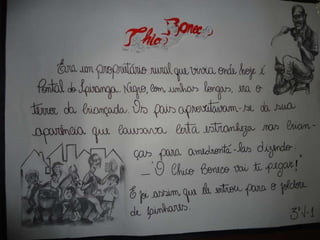 Chico Boneco
Era um proprietário rural que vivia onde hoje é
Pontal do Ipiranga. Negro, com unhas longas, era o
terror da criançada. Os pais aproveitavam-se da sua
aparência que causava certa estranheza nas crian-
ças para amedrontá-las dizendo:
_ "O Chico Boneco vai ti pegar!"
E foi assim que ele entrou para o folclore
de Linhares.
3ºV-1